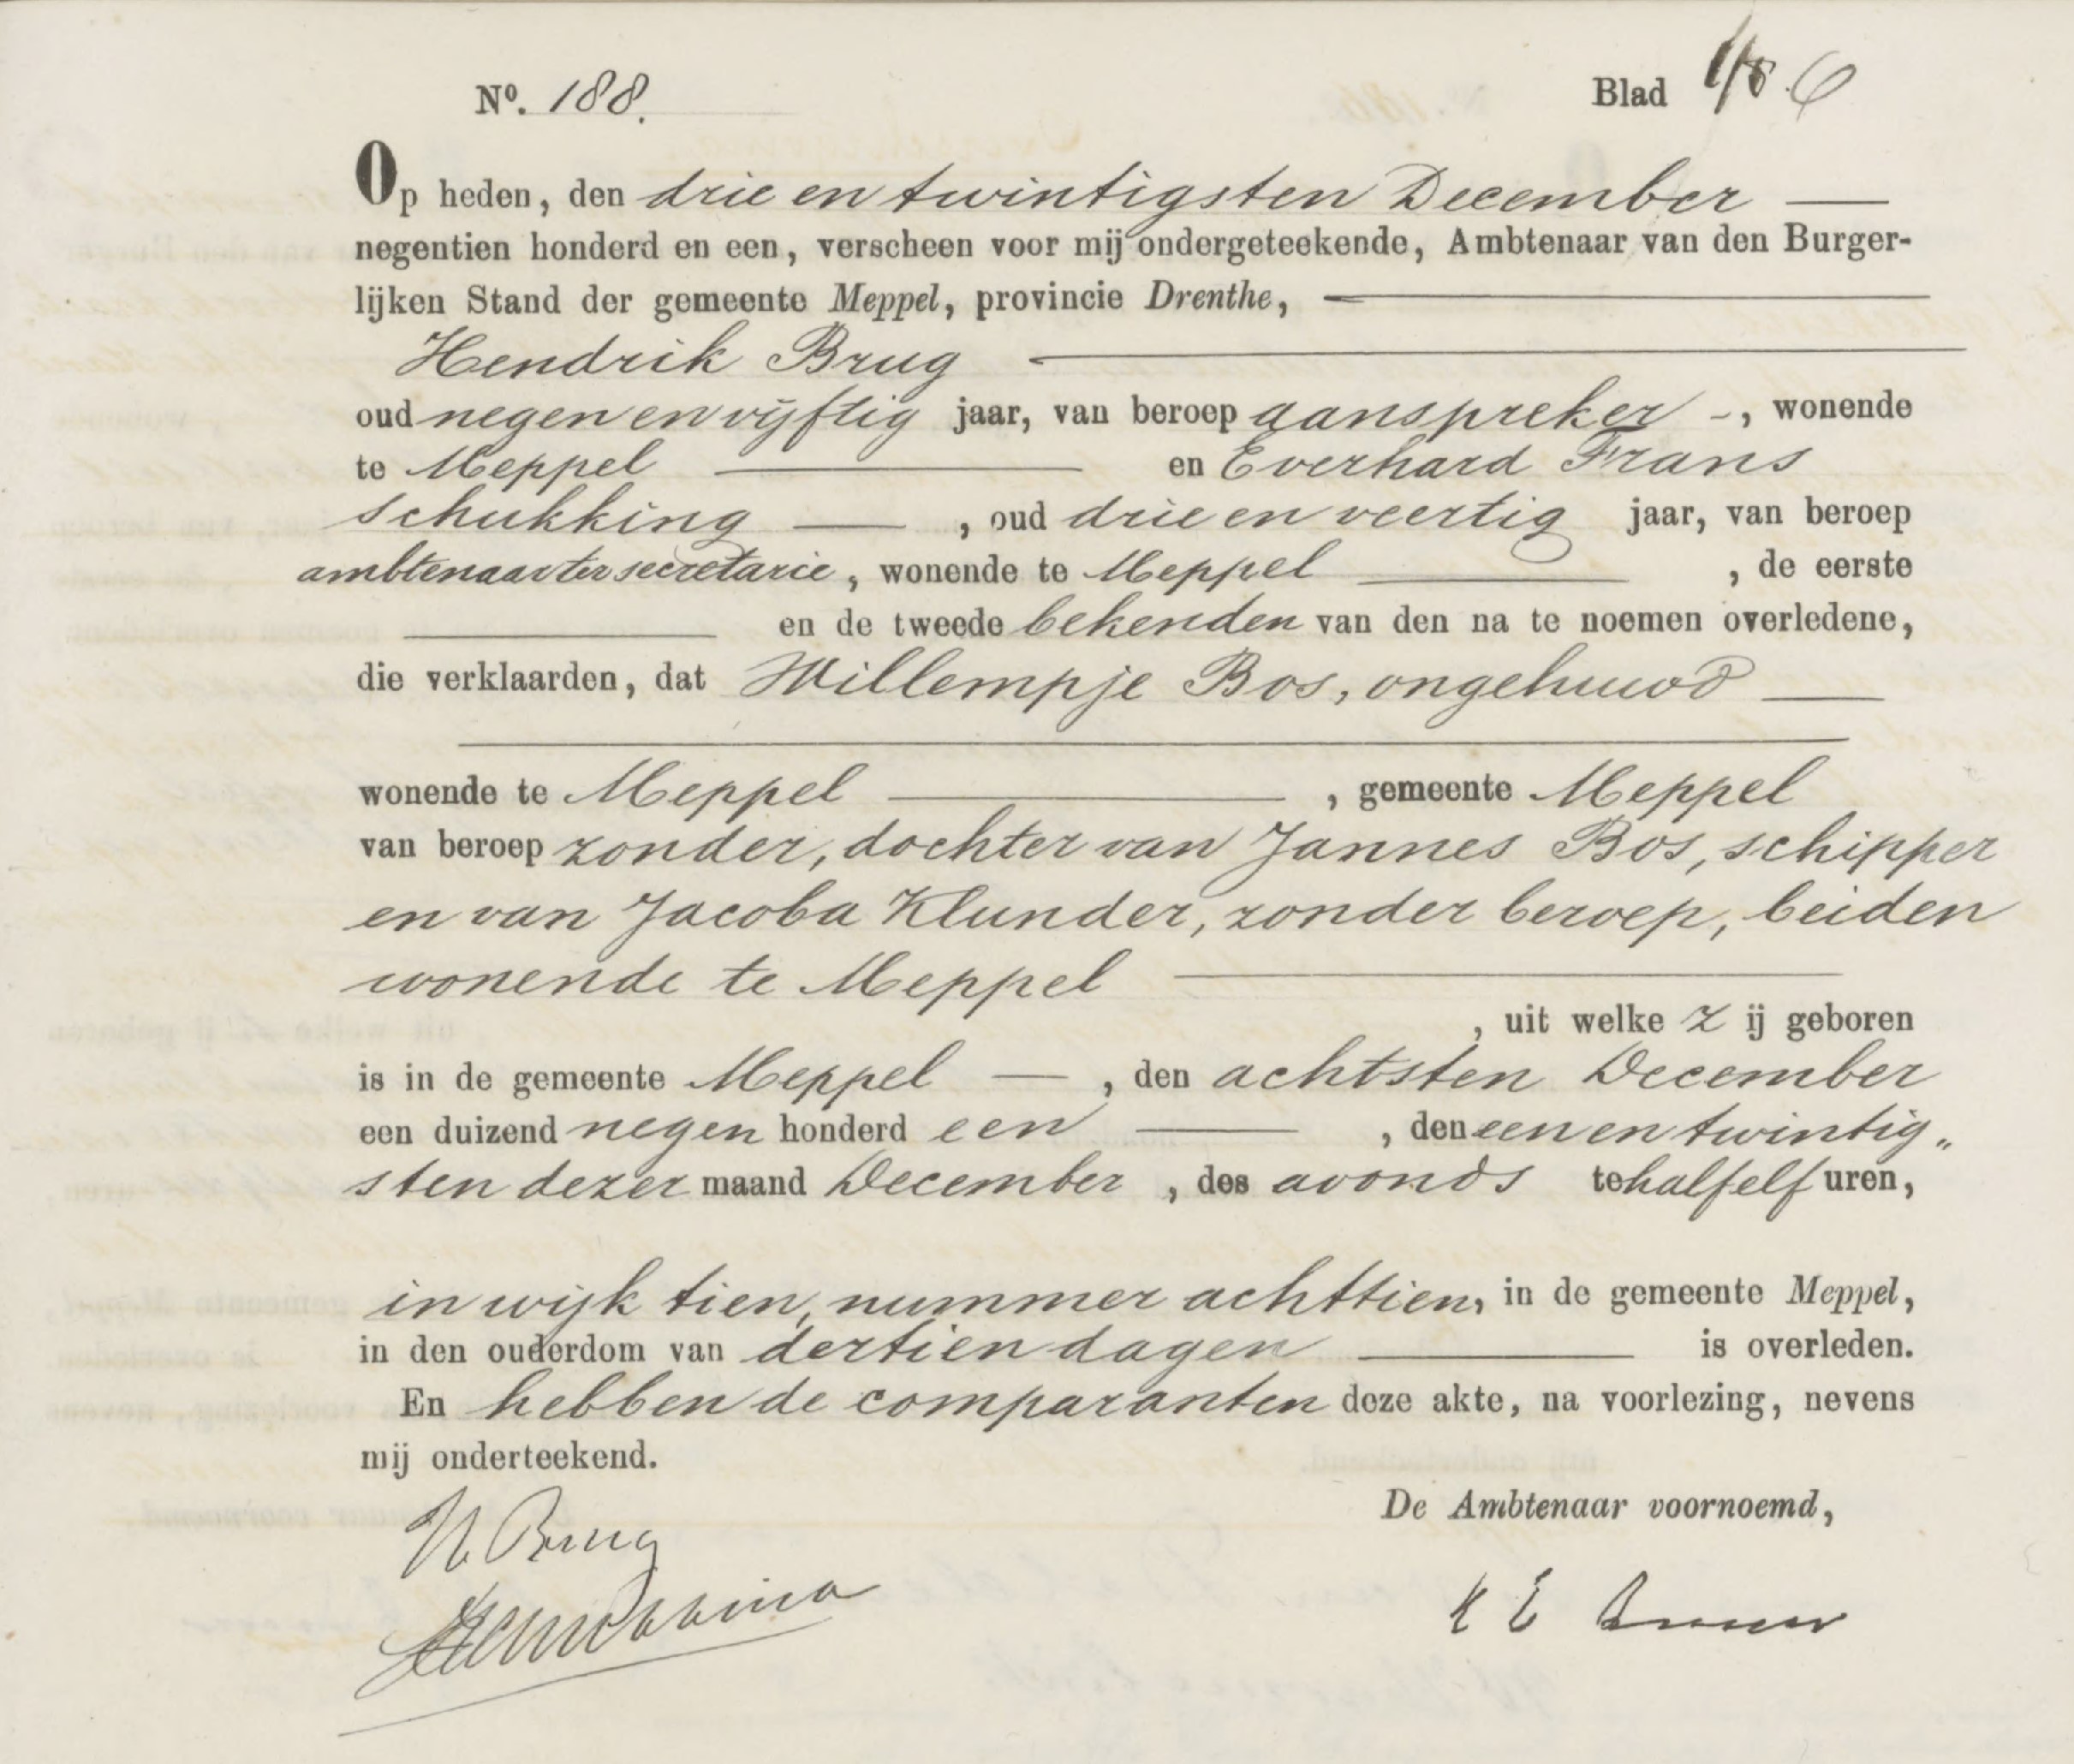 Nº. 188.
Blad
Op heden, den drie en twintigsten December
negentien honderd en een, verscheen voor mij ondergeteekende, Ambtenaar van den Burger-
lijken Stand der gemeente Meppel, provincie Drenthe,
Hendrik Brug
oud negen en vijftig jaar, van beroep aanspreker -, wonende
te Meppel en Everhard Frans
Schukking , oud drie en veertig jaar, van beroep
ambtenaar ter secretarie, wonende te Meppel , de eerste
en de tweede bekenden van den na te noemen overledene,
die verklaarden, dat Willempje Bos, ongehuwd
wonende te Meppel , gemeente Meppel
van beroep zonder, dochter van Jannes Bos, schipper
en van Jacoba Klunder, zonder beroep, beiden
wonende te Meppel
, uit welke z ij geboren
is in de gemeente Meppel , den achtsten December
een duizend negen honderd een , den een en twintig„
sten dezer maand December , des avonds te half elf uren,
in wijk tien, nummer achttien, in de gemeente Meppel,
in den ouderdom van dertien dagen is overleden.
En hebben de comparanten deze akte, na voorlezing, nevens
mij onderteekend.
De Ambtenaar voornoemd,
H Brug